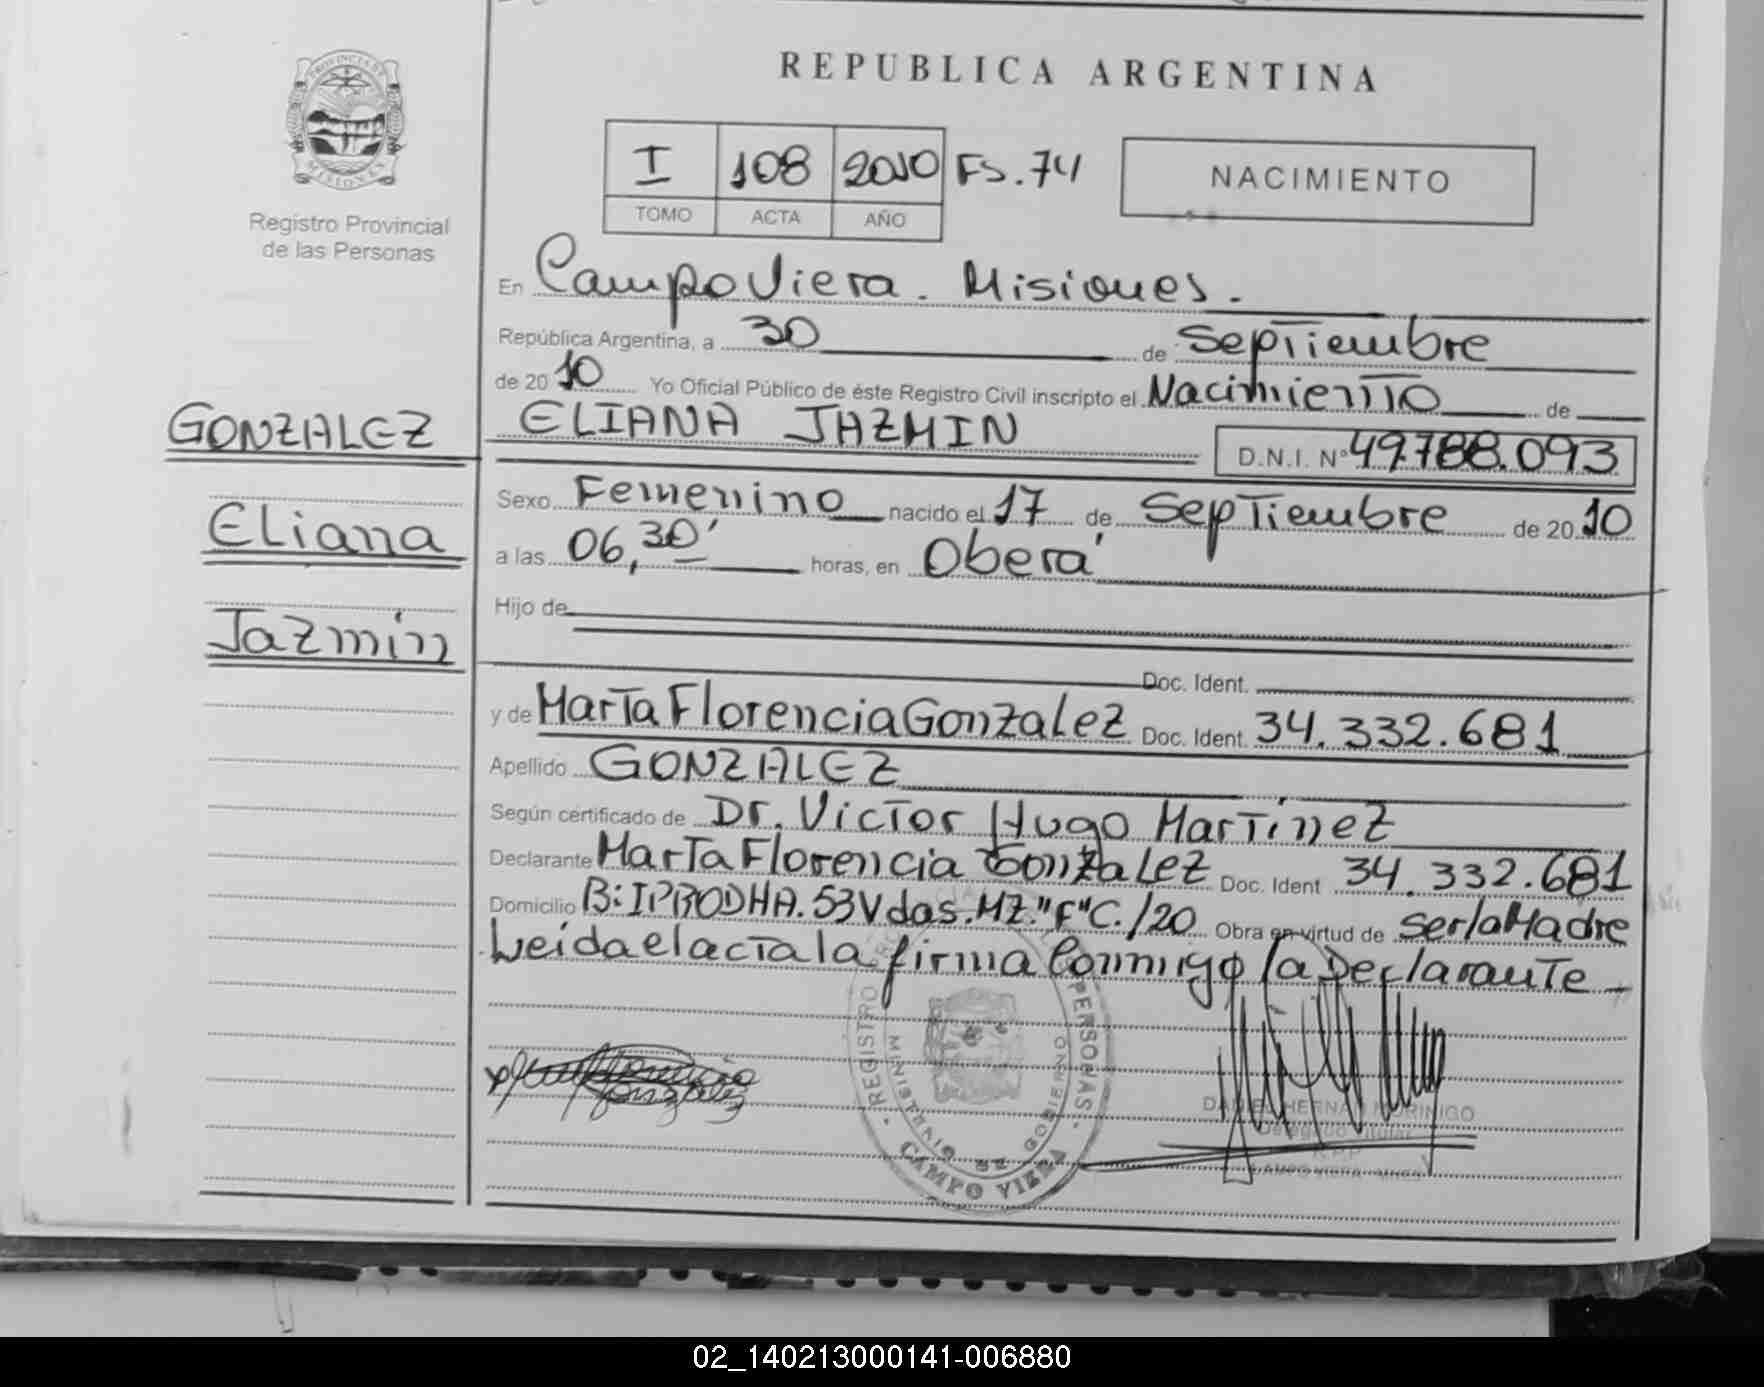 REPUBLICA ARGENTINA
PROVINCIA DE MISIONES
Registro Provincial
de las Personas
I 108 2010 FS.74
TOMO ACTA AÑO
NACIMIENTO
En Campo Viera. Misiones.
República Argentina, a 30 de Septiembre
de 2010 Yo Oficial Público de éste Registro Civil inscripto el Nacimiento de
ELIANA JAZMIN D.N.I. Nº 49.788.093
GONZALEZ
Eliana
Jazmin
Sexo Femenino nacido el 17 de Septiembre de 2010
a las 06,30' horas, en Oberá
Hijo de
Doc. Ident.
y de Marta Florencia Gonzalez Doc. Ident. 34.332.681
Apellido GONZALEZ
Según certificado de Dr. Victor Hugo Martinez
Declarante Marta Florencia Gonzalez Doc. Ident 34.332.681
Domicilio B: IPRODHA. 53 Vdas. MZ. "F" C./20 Obra en virtud de ser la Madre
Leida el acta la firma Conmigo la Declarante
Florencia
Gonzalez
REGISTRO PERSONAS
MINISTERIO DE GOBIERNO
CAMPO VIERA
DANIEL HERNAN MORINIGO
Delegado Titular
R.P.P.
CAMPO VIERA - MNES
02_140213000141-006880